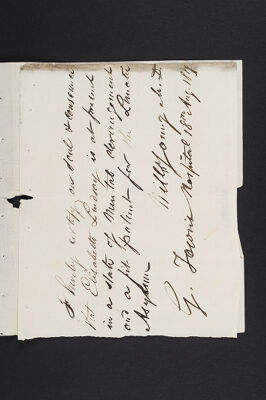 I hereby certify on soul & conscience
that Elizabeth Lindsay is at present
in a state of Mental derangement
and a fit patient for the Lunatic
Asylum
Will Young M.D.
G. Town Hospital 18th Aug